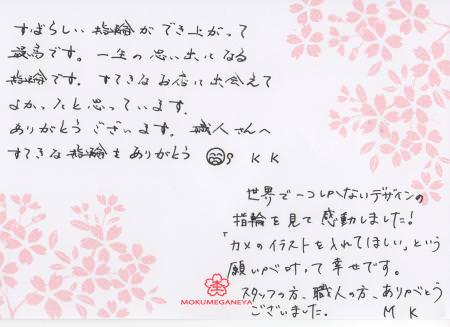 すばらしい指輪ができ上がって
最高です。一生の思い出になる
指輪です。すてきなお店に出会えて
よかったと思っています。
ありがとうございます。職人さんへ
すてきな指輪をありがとう K K
世界で一つしかないデザインの
指輪を見て感動しました!
「カメのイラストを入れてほしい」という
願いが叶って幸せです。
スタッフの方、職人の方、ありがとう
ございました。 M K
MOKUMEGANEYA